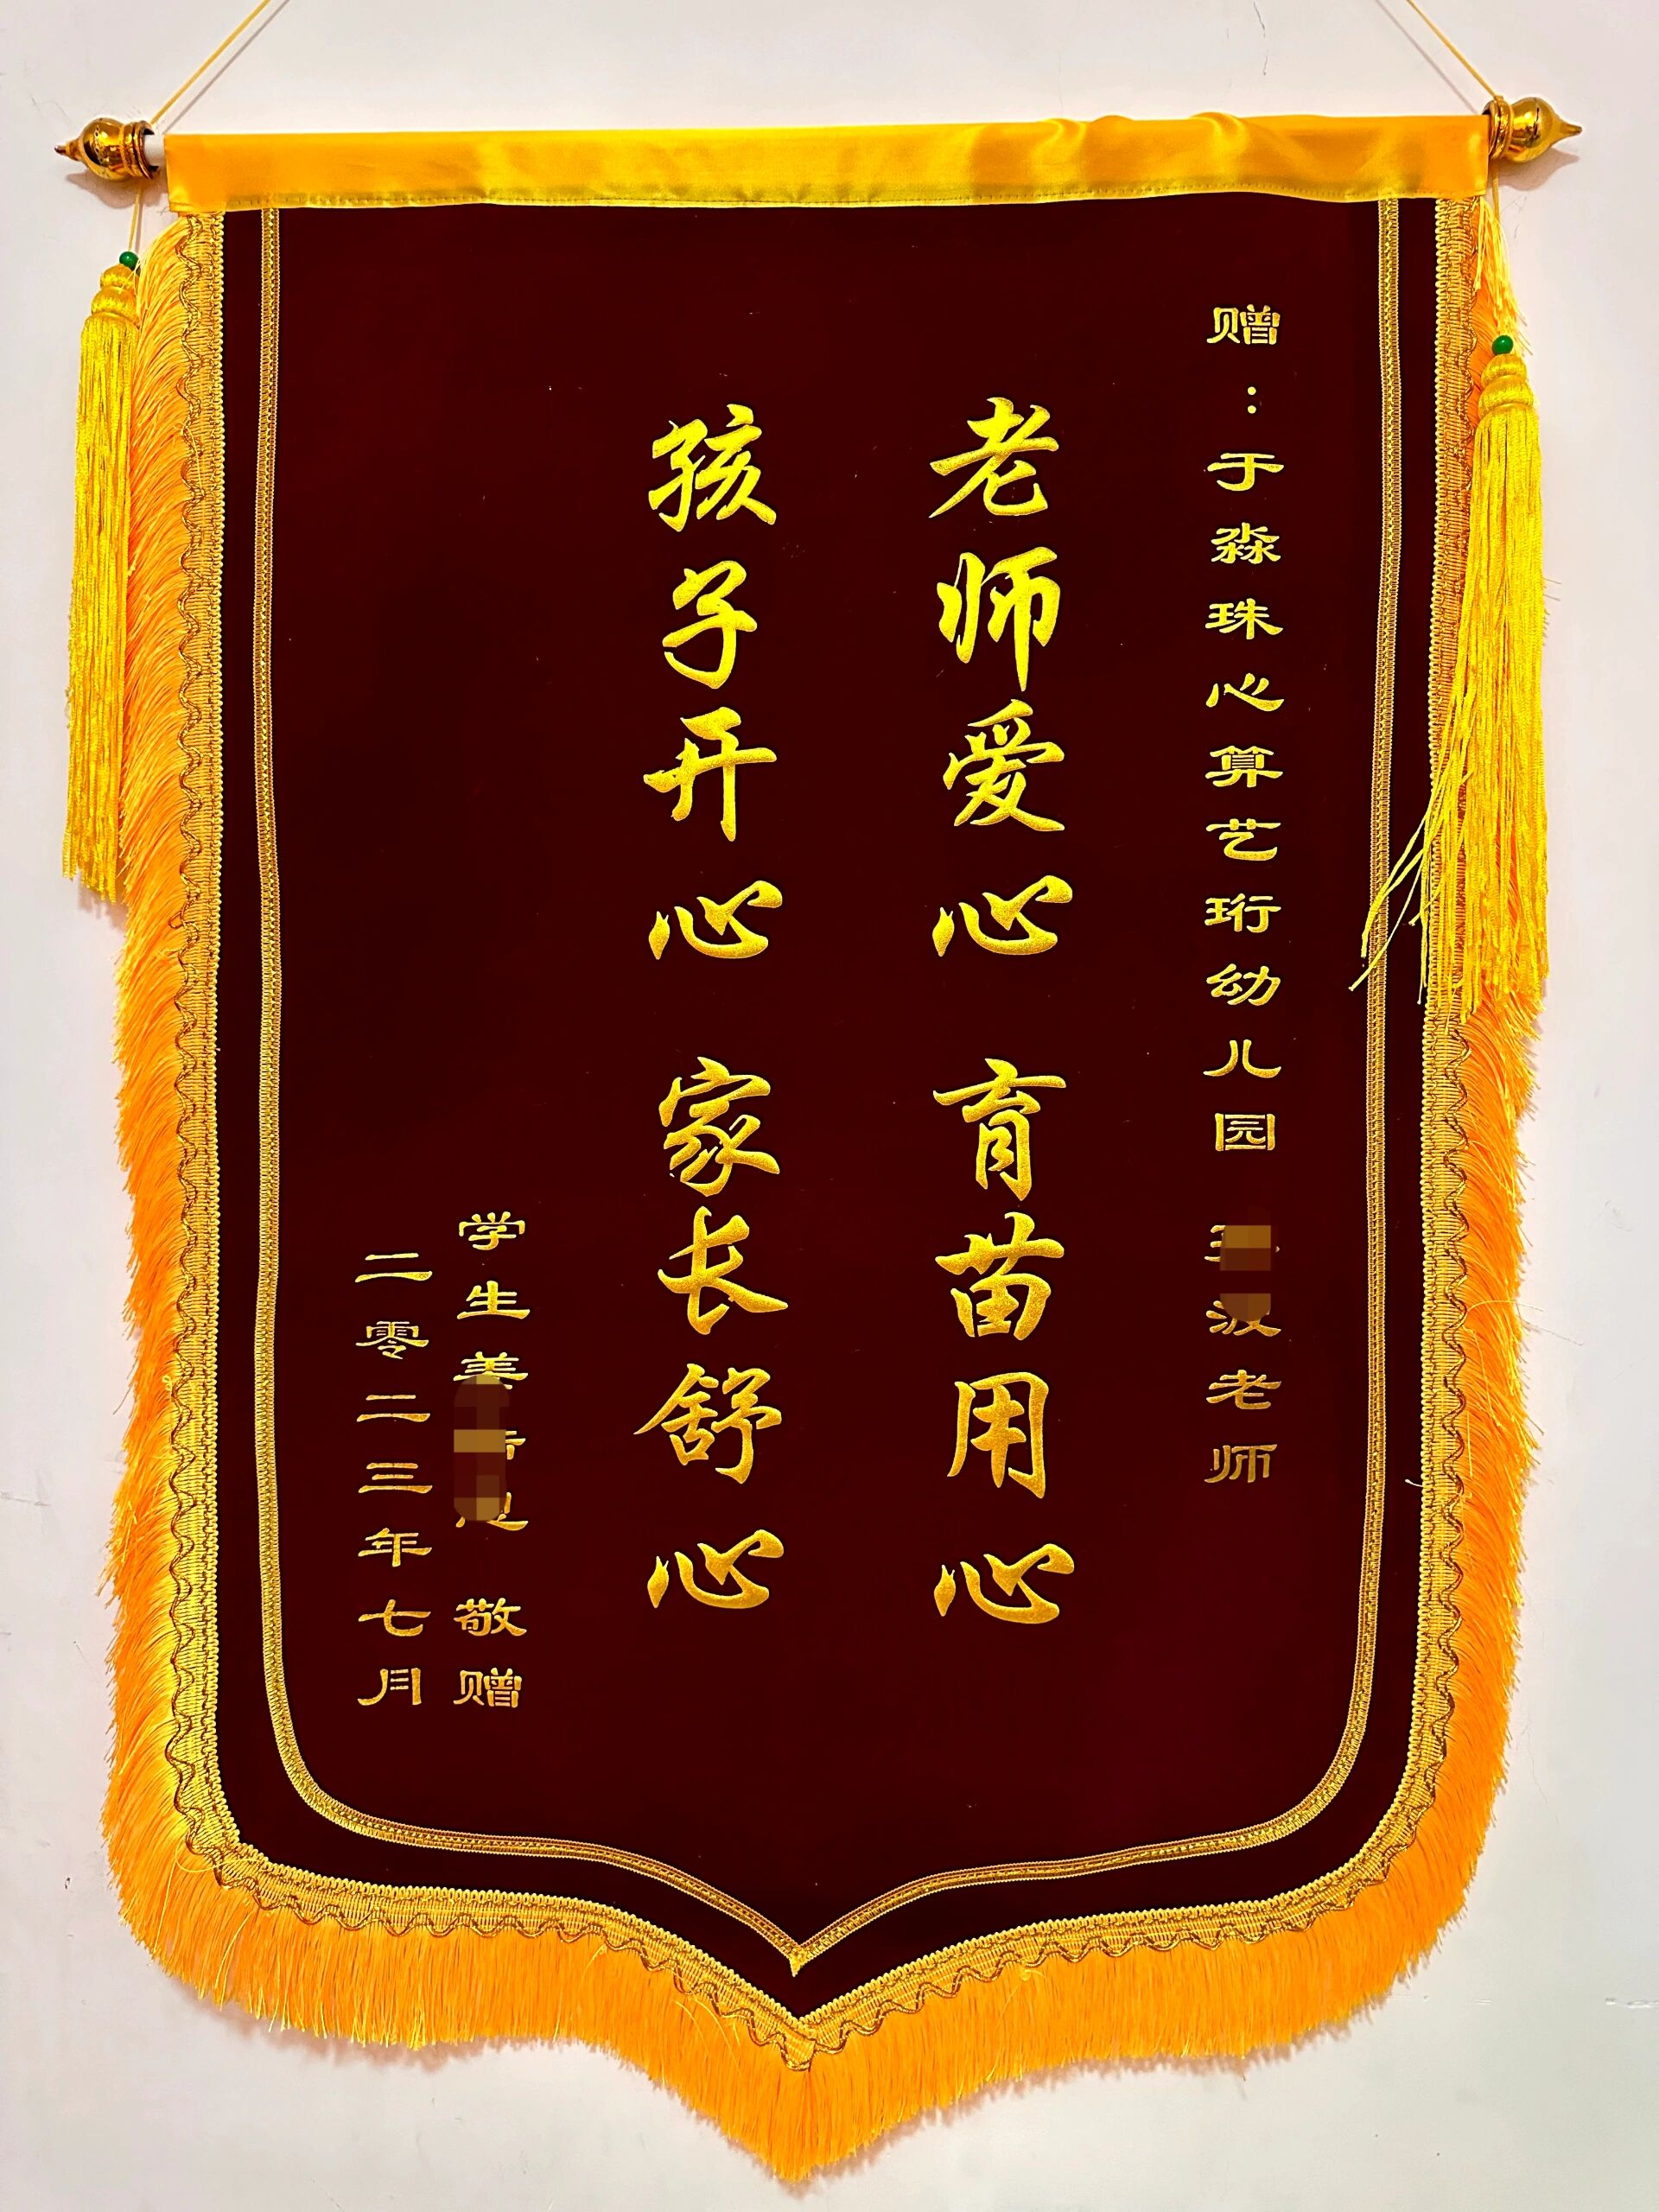 赠：于淼珠心算艺珩幼儿园 老师
老师爱心 育苗用心
孩子开心 家长舒心
学生 敬赠
二零二三年七月